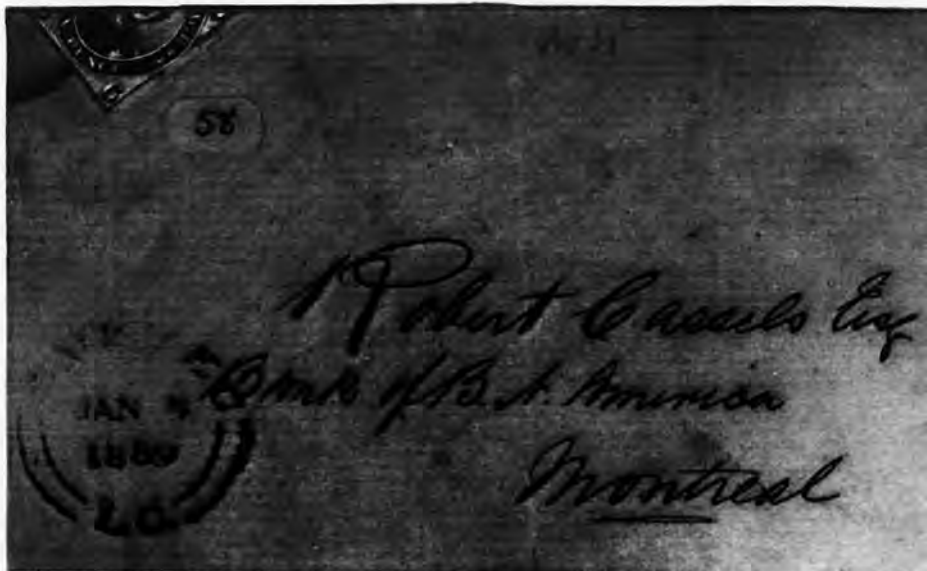 58
Robert Cassels Esq
Bank of B. N. America
Montreal
JAN
18
L.C.